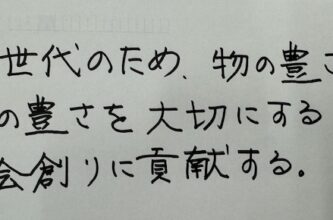 世代のため、物の豊さ
の豊さを大切にする
会創りに貢献する。